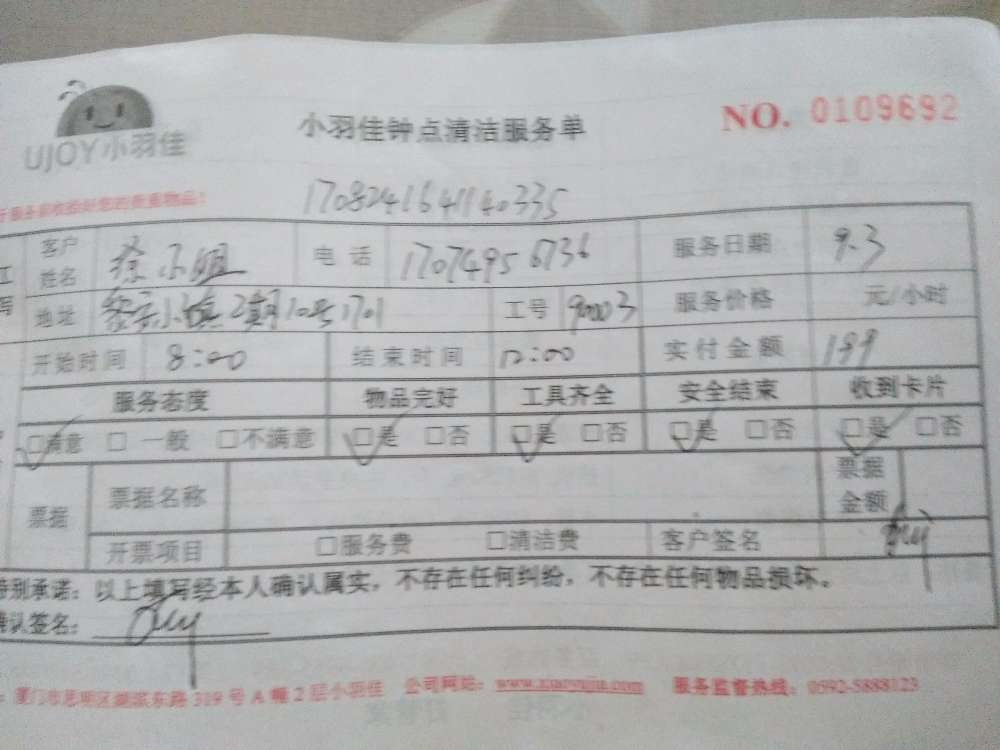 UJOY小羽佳
小羽佳钟点清洁服务单
NO. 0109692
170824164140335
客户姓名 徐小姐 电话 17074956736 服务日期 9.3
地址 小镇2期10号1701 工号 90003 服务价格 元/小时
开始时间 8:00 结束时间 12:00 实付金额 199
服务态度 物品完好 工具齐全 安全结束 收到卡片
☑满意 □一般 □不满意 ☑是 □否 ☑是 □否 ☑是 □否 ☑是 □否
票据 票据名称 票据金额
开票项目 □服务费 □清洁费 客户签名
特别承诺：以上填写经本人确认属实，不存在任何纠纷，不存在任何物品损坏。
确认签名：
厦门市思明区湖滨东路319号A幢2层小羽佳 公司网站：www.xiaoyujia.com 服务监督热线：0592-5888123